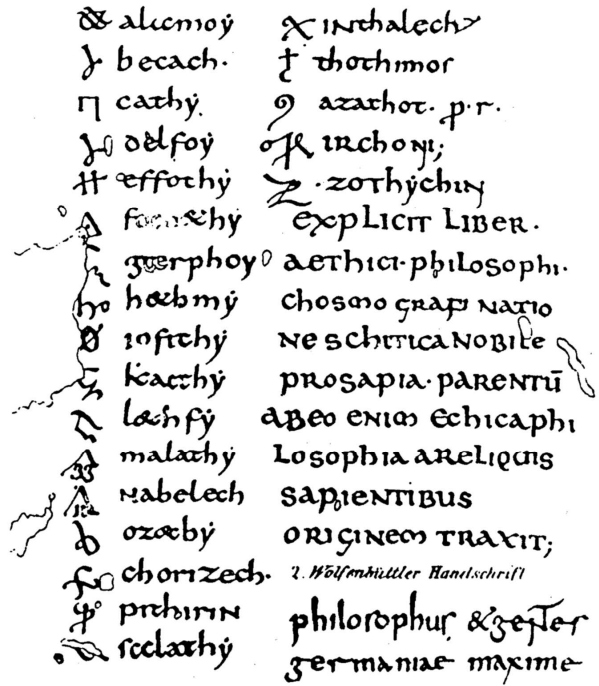 alicmoÿ
becach·
cathÿ
delfoÿ
effothÿ
hœbmÿ
infithÿ
malathÿ
Nabelech
ozœbÿ
chorizech·
pithirin
sclathÿ
inthalech
thothimos
azathot· p·r·
IRchoni;
·zothÿchin
EXPLICIT LIBER·
AETHICI·philosophi·
chosmo grafi NATIO
NE SChITICA NOBILE
PROSAPIA· PARENTŪ
ABEO ENIM EThICAPhI
LOSOPhIA ARELIQUIS
SAPIENTIBUS
ORIGINEM TRAXIT;
2. Wolfenbüttler Handschrift
philosophus & gentes
germaniae maxime